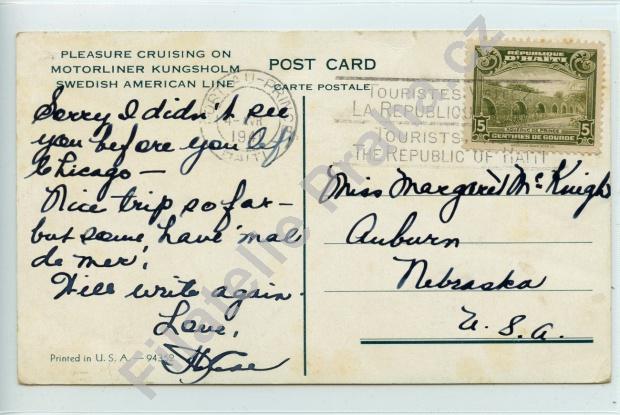 PLEASURE CRUISING ON
MOTORLINER KUNGSHOLM
SWEDISH AMERICAN LINE
POST CARD
CARTE POSTALE
Sorry I didn't see
you before you left
Chicago —
Nice trip so far —
but some have "mal
de mer"
Will write again.
Love,
Printed in U. S. A. — 943
RÉPUBLIQUE
D'HAITI
15
15
CENTIMES DE GOURDE
HAITI
TOURISTES
LA REPUBLIQUE
TOURISTS
THE REPUBLIC OF HAITI
Miss Margaret McKnigh
Auburn
Nebraska
U.S.A.
Filatelie Praha.cz